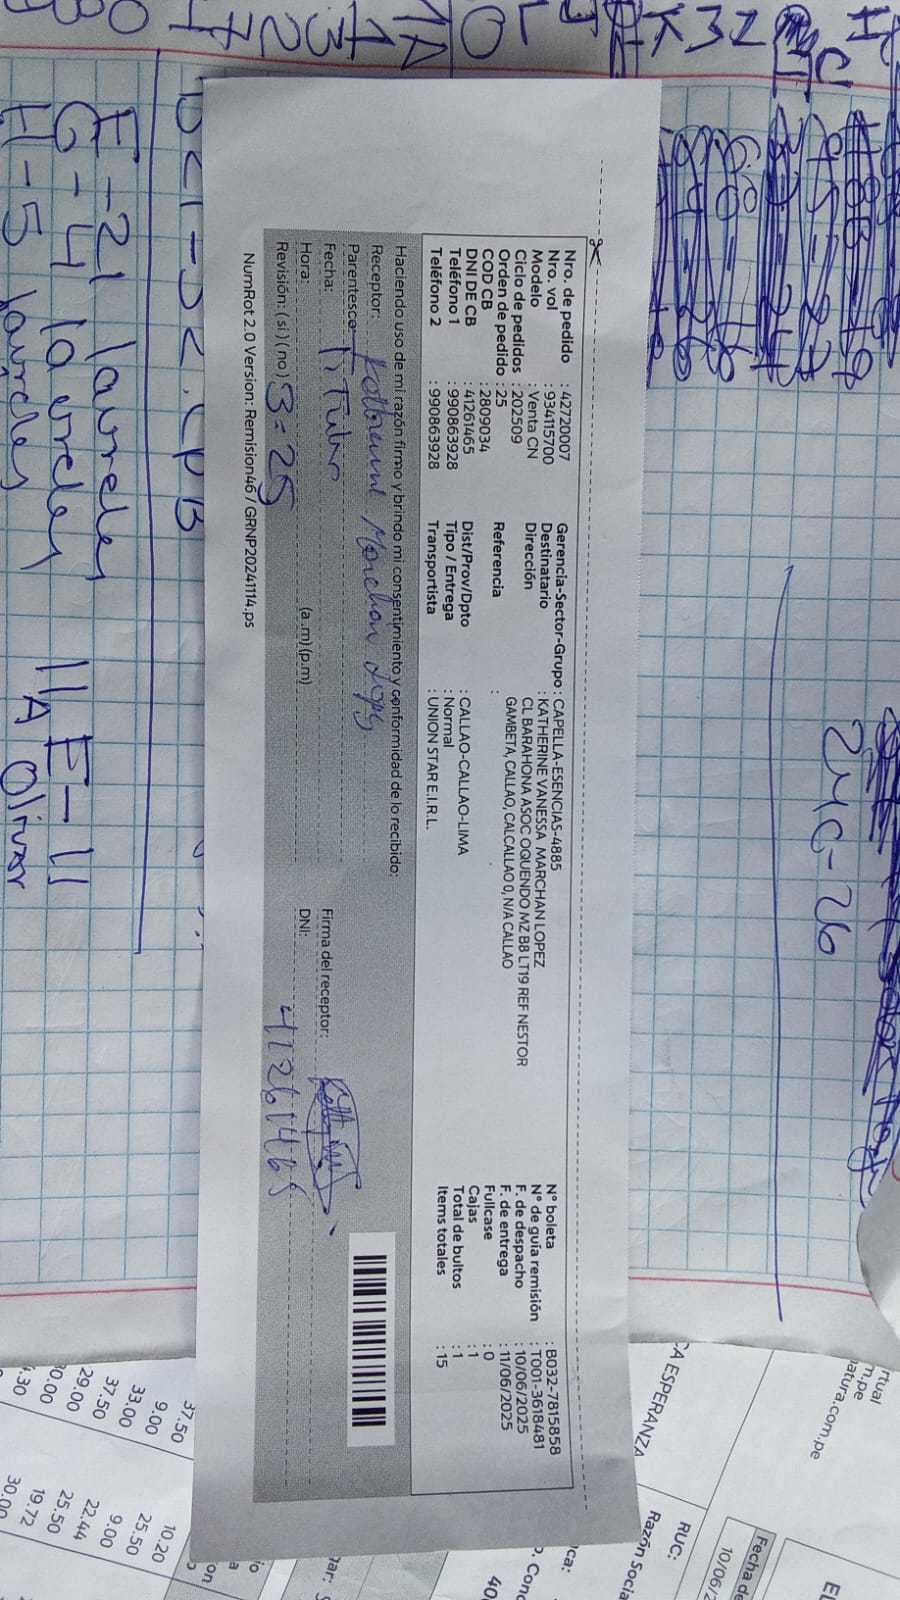 Nro. de pedido : 42720007
Nro. vol : 934115700
Modelo : Venta CN
Ciclo de pedidos : 202509
Orden de pedido : 25
COD CB : 2809034
DNI DE CB : 41261465
Teléfono 1 : 990863928
Teléfono 2 : 990863928
Gerencia-Sector-Grupo : CAPELLA-ESENCIAS-4885
Destinatario : KATHERINE VANESSA MARCHAN LOPEZ
Dirección CL BARAHONA ASOC OQUENDO MZ B8 LT19 REF NESTOR
GAMBETA, CALLAO, CALCALLAO 0, N/A CALLAO
Referencia :
Dist/Prov/Dpto : CALLAO-CALLAO-LIMA
Tipo / Entrega : Normal
Transportista : UNION STAR E.I.R.L.
N° boleta : B032-7815858
N° de guía remisión : T001-3618481
F. de despacho : 10/06/2025
F. de entrega : 11/06/2025
Fullcase : 0
Cajas : 1
Total de bultos : 1
Items totales : 15
Haciendo uso de mi razón firmo y brindo mi consentimiento y conformidad de lo recibido:
Receptor: Katherine Marchan Lopez
Parentesco: Titular
Fecha:
Hora: 3:25 (a.m) (p.m)
Revisión: (si) (no)
Firma del receptor:
DNI: 41261465
NumRot 2.0 Version: Remision46 / GRNP20241114.ps
2MC-26
E-21 laureles
G-4 laureles
H-5 laureles
11 E-11
11A Olivar
CA ESPERANZA
RUC:
Razón Socia
10/06/2
natura.com.pe
37.50
9.00
33.00
37.50
29.00
10.20
25.50
9.00
22.44
25.50
19.72
30.00